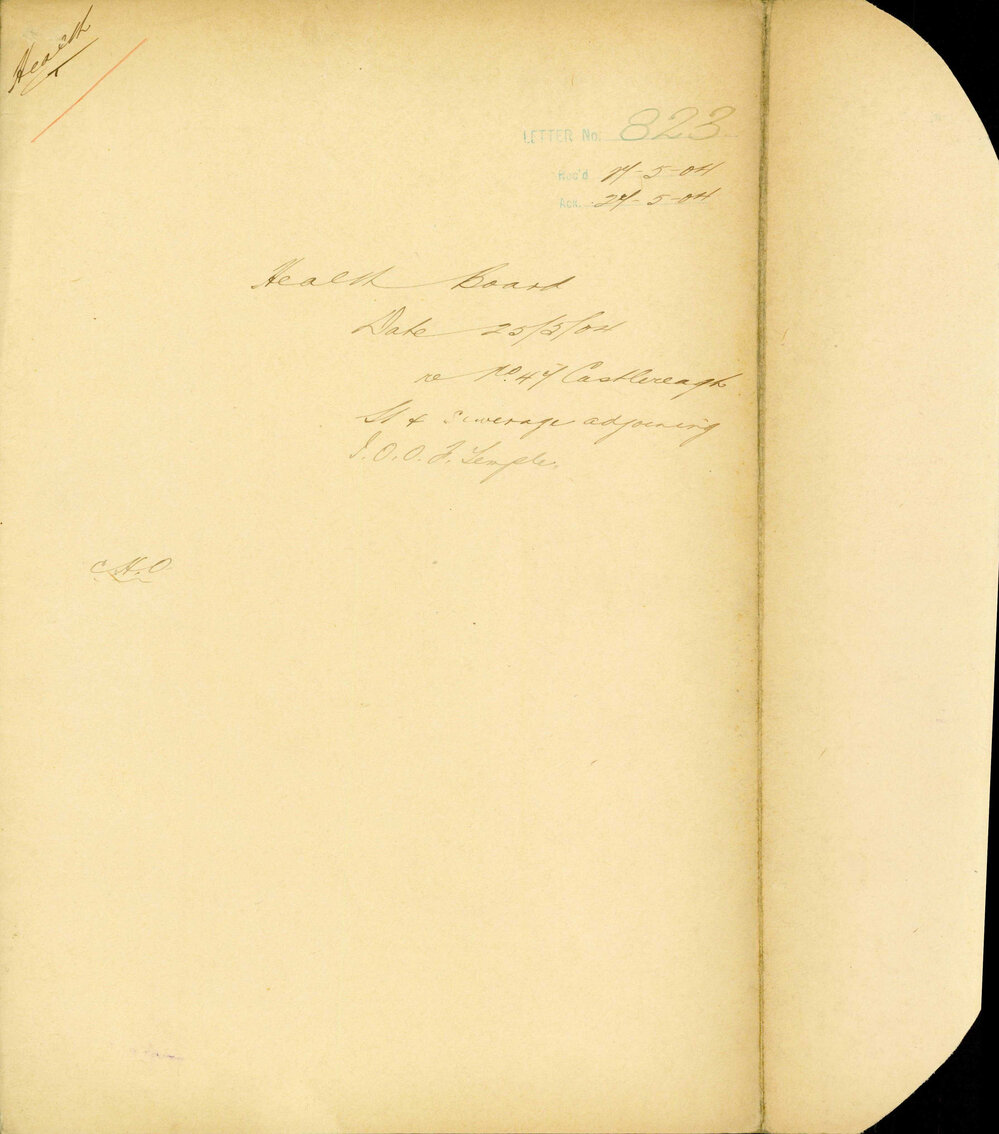 Health
LETTER No. 823
Rec'd 27-5-04
Ack. 27-5-04
Health Board
Date 25/5/04
re No. 47 Castlereagh
St & Sewerage adjoining
I.O.O.F. Temple.
C.H.O